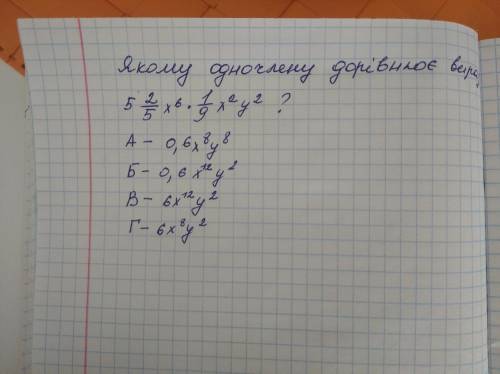 Якому одночлену дорівнює вира
5 2/5 x⁶ · 1/9 x²y² ?
А - 0,6x⁸y⁸
Б - 0,6x¹²y²
В - 6x¹²y²
Г - 6x⁸y²